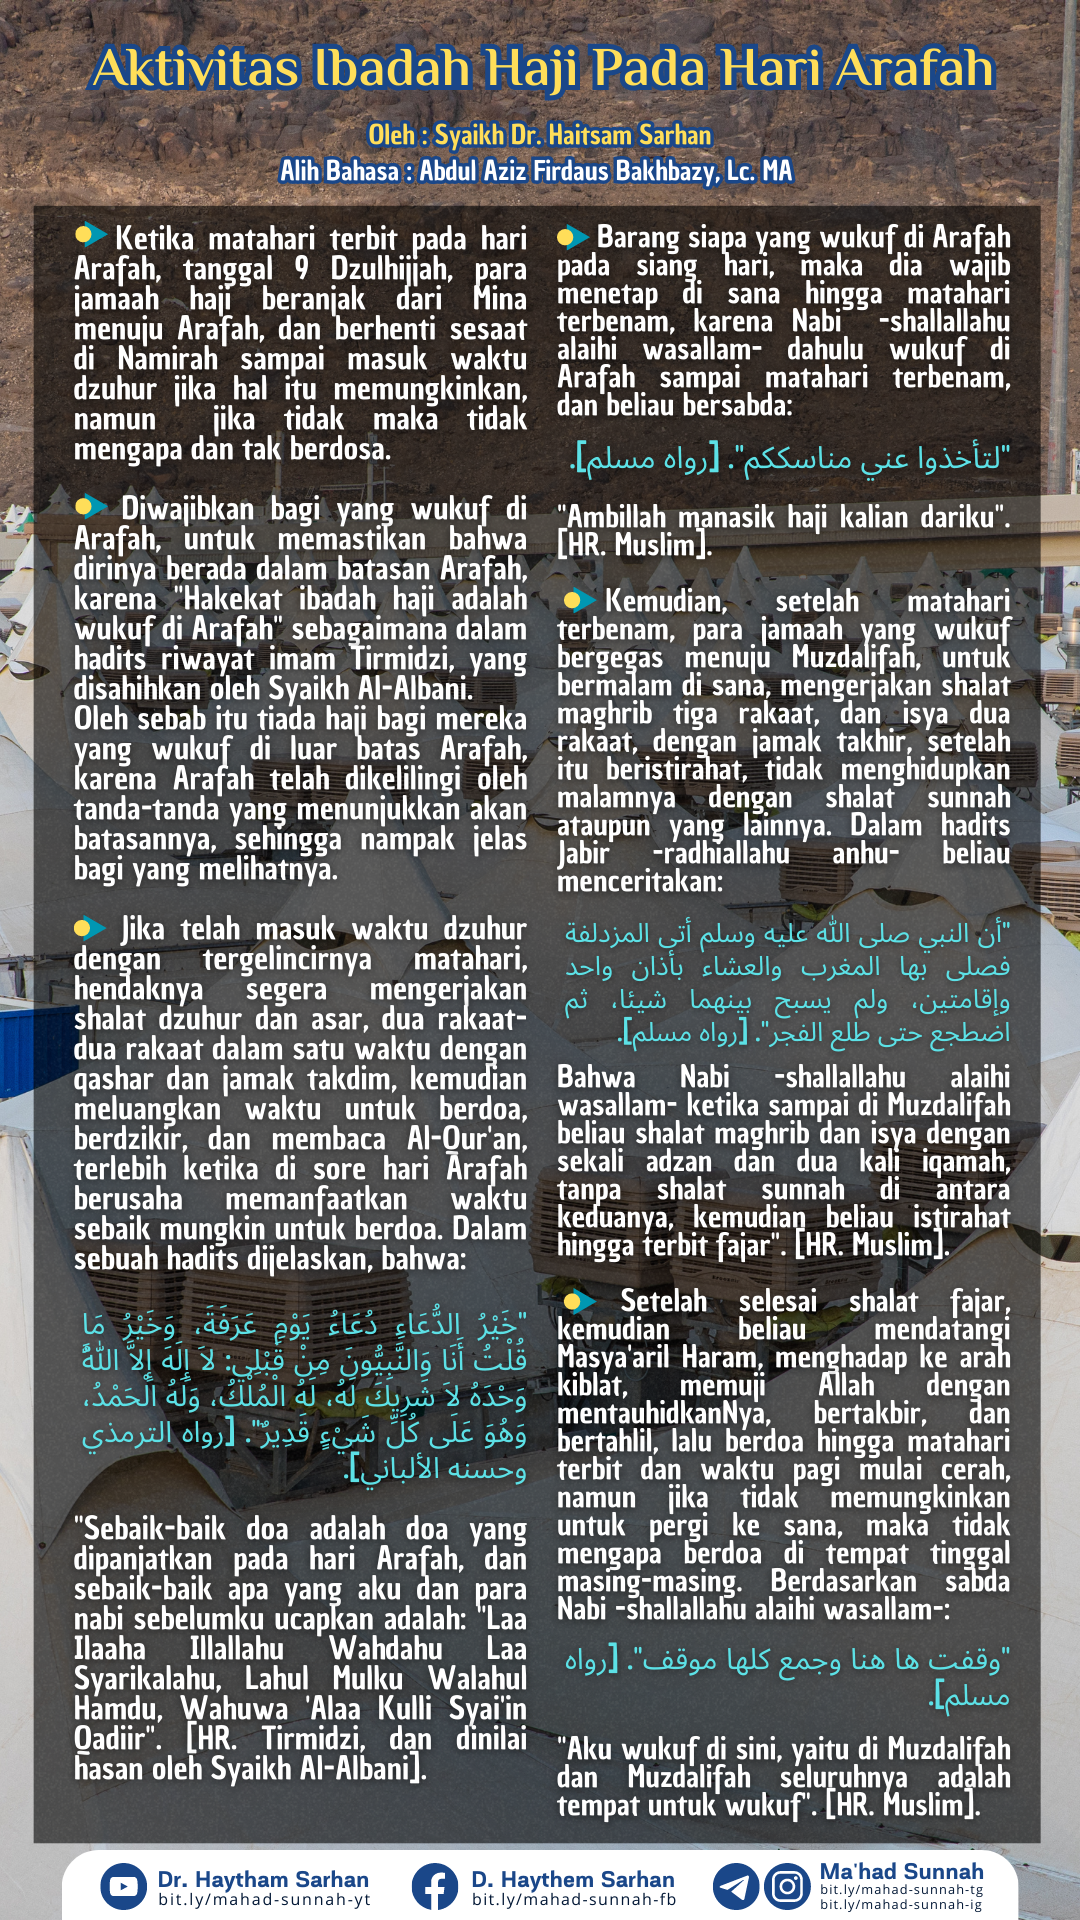 Aktivitas Ibadah Haji Pada Hari Arafah
Oleh : Syaikh Dr. Haitsam Sarhan
Alih Bahasa : Abdul Aziz Firdaus Bakhbazy, Lc. MA
Ketika matahari terbit pada hari
Arafah, tanggal 9 Dzulhijjah, para
jamaah haji beranjak dari Mina
menuju Arafah, dan berhenti sesaat
di Namirah sampai masuk waktu
dzuhur jika hal itu memungkinkan,
namun jika tidak maka tidak
mengapa dan tak berdosa.
Diwajibkan bagi yang wukuf di
Arafah, untuk memastikan bahwa
dirinya berada dalam batasan Arafah,
karena "Hakekat ibadah haji adalah
wukuf di Arafah" sebagaimana dalam
hadits riwayat imam Tirmidzi, yang
disahihkan oleh Syaikh Al-Albani.
Oleh sebab itu tiada haji bagi mereka
yang wukuf di luar batas Arafah,
karena Arafah telah dikelilingi oleh
tanda-tanda yang menunjukkan akan
batasannya, sehingga nampak jelas
bagi yang melihatnya.
Jika telah masuk waktu dzuhur
dengan tergelincirnya matahari,
hendaknya segera mengerjakan
shalat dzuhur dan asar, dua rakaat-
dua rakaat dalam satu waktu dengan
qashar dan jamak takdim, kemudian
meluangkan waktu untuk berdoa,
berdzikir, dan membaca Al-Qur'an,
terlebih ketika di sore hari Arafah
berusaha memanfaatkan waktu
sebaik mungkin untuk berdoa. Dalam
sebuah hadits dijelaskan, bahwa:
"خَيْرُ الدُّعَاءِ دُعَاءُ يَوْمِ عَرَفَةَ، وَخَيْرُ مَا
قُلْتُ أَنَا وَالنَّبِيُّونَ مِنْ قَبْلِي: لاَ إِلَهَ إِلاَّ اللهُ
وَحْدَهُ لاَ شَرِيكَ لَهُ، لَهُ الْمُلْكُ، وَلَهُ الْحَمْدُ،
وَهُوَ عَلَى كُلِّ شَيْءٍ قَدِيرٌ". [رواه الترمذي
وحسنه الألباني].
"Sebaik-baik doa adalah doa yang
dipanjatkan pada hari Arafah, dan
sebaik-baik apa yang aku dan para
nabi sebelumku ucapkan adalah: "Laa
Ilaaha Illallahu Wahdahu Laa
Syarikalahu, Lahul Mulku Walahul
Hamdu, Wahuwa 'Alaa Kulli Syai'in
Qadiir". [HR. Tirmidzi, dan dinilai
hasan oleh Syaikh Al-Albani].
Barang siapa yang wukuf di Arafah
pada siang hari, maka dia wajib
menetap di sana hingga matahari
terbenam, karena Nabi -shallallahu
alaihi wasallam- dahulu wukuf di
Arafah sampai matahari terbenam,
dan beliau bersabda:
"لتأخذوا عني مناسككم". [رواه مسلم].
"Ambillah manasik haji kalian dariku".
[HR. Muslim].
Kemudian, setelah matahari
terbenam, para jamaah yang wukuf
bergegas menuju Muzdalifah, untuk
bermalam di sana, mengerjakan shalat
maghrib tiga rakaat, dan isya dua
rakaat, dengan jamak takhir, setelah
itu beristirahat, tidak menghidupkan
malamnya dengan shalat sunnah
ataupun yang lainnya. Dalam hadits
Jabir -radhiallahu anhu- beliau
menceritakan:
"أن النبي صلى الله عليه وسلم أتى المزدلفة
فصلى بها المغرب والعشاء بأذان واحد
وإقامتين، ولم يسبح بينهما شيئا، ثم
اضطجع حتى طلع الفجر". [رواه مسلم].
Bahwa Nabi -shallallahu alaihi
wasallam- ketika sampai di Muzdalifah
beliau shalat maghrib dan isya dengan
sekali adzan dan dua kali iqamah,
tanpa shalat sunnah di antara
keduanya, kemudian beliau istirahat
hingga terbit fajar". [HR. Muslim].
Setelah selesai shalat fajar,
kemudian beliau mendatangi
Masya'aril Haram, menghadap ke arah
kiblat, memuji Allah dengan
mentauhidkanNya, bertakbir, dan
bertahlil, lalu berdoa hingga matahari
terbit dan waktu pagi mulai cerah,
namun jika tidak memungkinkan
untuk pergi ke sana, maka tidak
mengapa berdoa di tempat tinggal
masing-masing. Berdasarkan sabda
Nabi -shallallahu alaihi wasallam-:
"وقفت ها هنا وجمع كلها موقف". [رواه
مسلم].
"Aku wukuf di sini, yaitu di Muzdalifah
dan Muzdalifah seluruhnya adalah
tempat untuk wukuf". [HR. Muslim].
Dr. Haytham Sarhan
bit.ly/mahad-sunnah-yt
D. Haythem Sarhan
bit.ly/mahad-sunnah-fb
Ma'had Sunnah
bit.ly/mahad-sunnah-tg
bit.ly/mahad-sunnah-ig